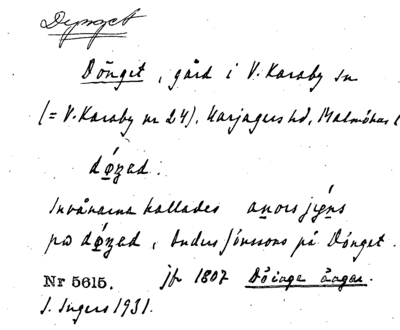 Dynget
Dönget, gård i V. Karaby sn
(= V. Karaby nr 24), Harjagers hd, Malmöhus l
Invånarna kallades
på, Anders Jönssons på Dönget.
Nr 5615. jfr 1807 Döinge ångar.
I. Ingers 1931.